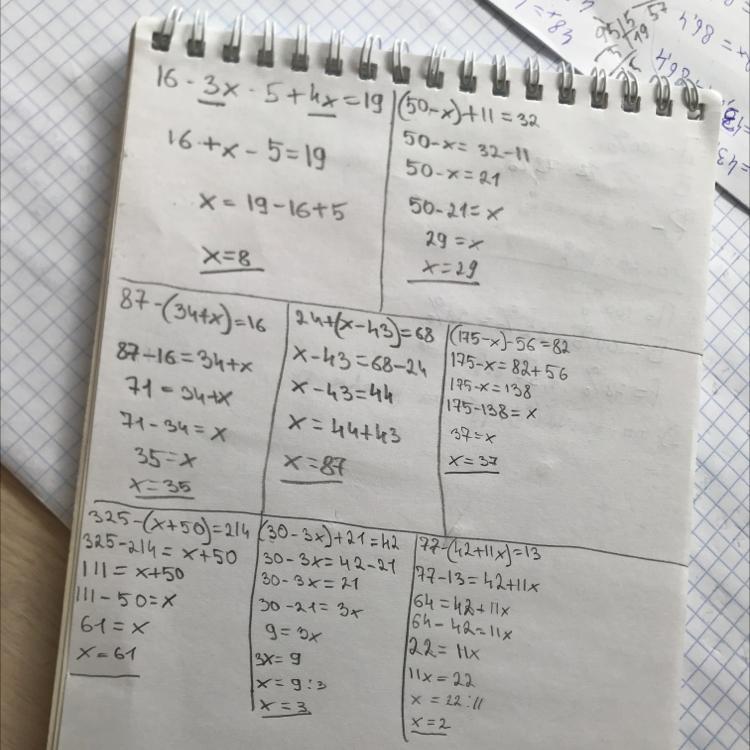 16 - 3x - 5 + 4x = 19
16 + x - 5 = 19
x = 19 - 16 + 5
x = 8
(50 - x) + 11 = 32
50 - x = 32 - 11
50 - x = 21
50 - 21 = x
29 = x
x = 29
87 - (34 + x) = 16
87 - 16 = 34 + x
71 = 34 + x
71 - 34 = x
35 = x
x = 35
24 + (x - 43) = 68
x - 43 = 68 - 24
x - 43 = 44
x = 44 + 43
x = 87
(175 - x) - 56 = 82
175 - x = 82 + 56
175 - x = 138
175 - 138 = x
37 = x
x = 37
325 - (x + 50) = 214
325 - 214 = x + 50
111 = x + 50
111 - 50 = x
61 = x
x = 61
(30 - 3x) + 21 = 42
30 - 3x = 42 - 21
30 - 3x = 21
30 - 21 = 3x
9 = 3x
3x = 9
x = 9 : 3
x = 3
77 - (42 + 11x) = 13
77 - 13 = 42 + 11x
64 = 42 + 11x
64 - 42 = 11x
22 = 11x
11x = 22
x = 22 : 11
x = 2